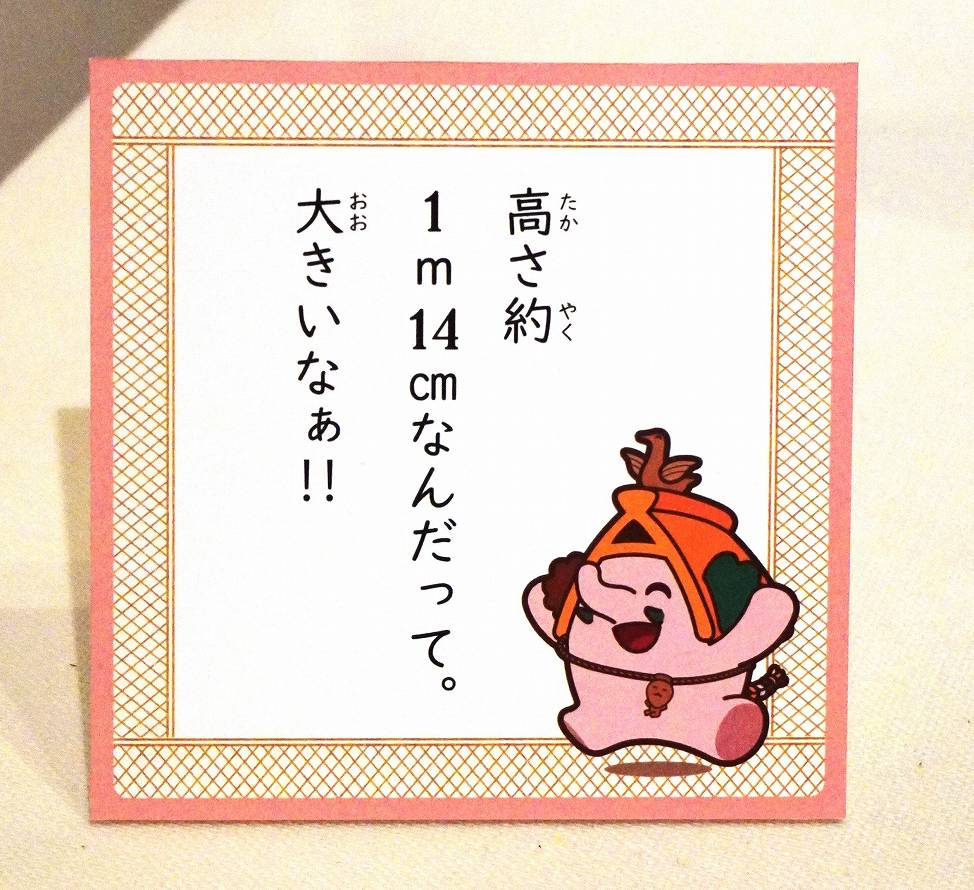 高さ約
1m14cmなんだって。
大きいなぁ!!
たか
やく
おお